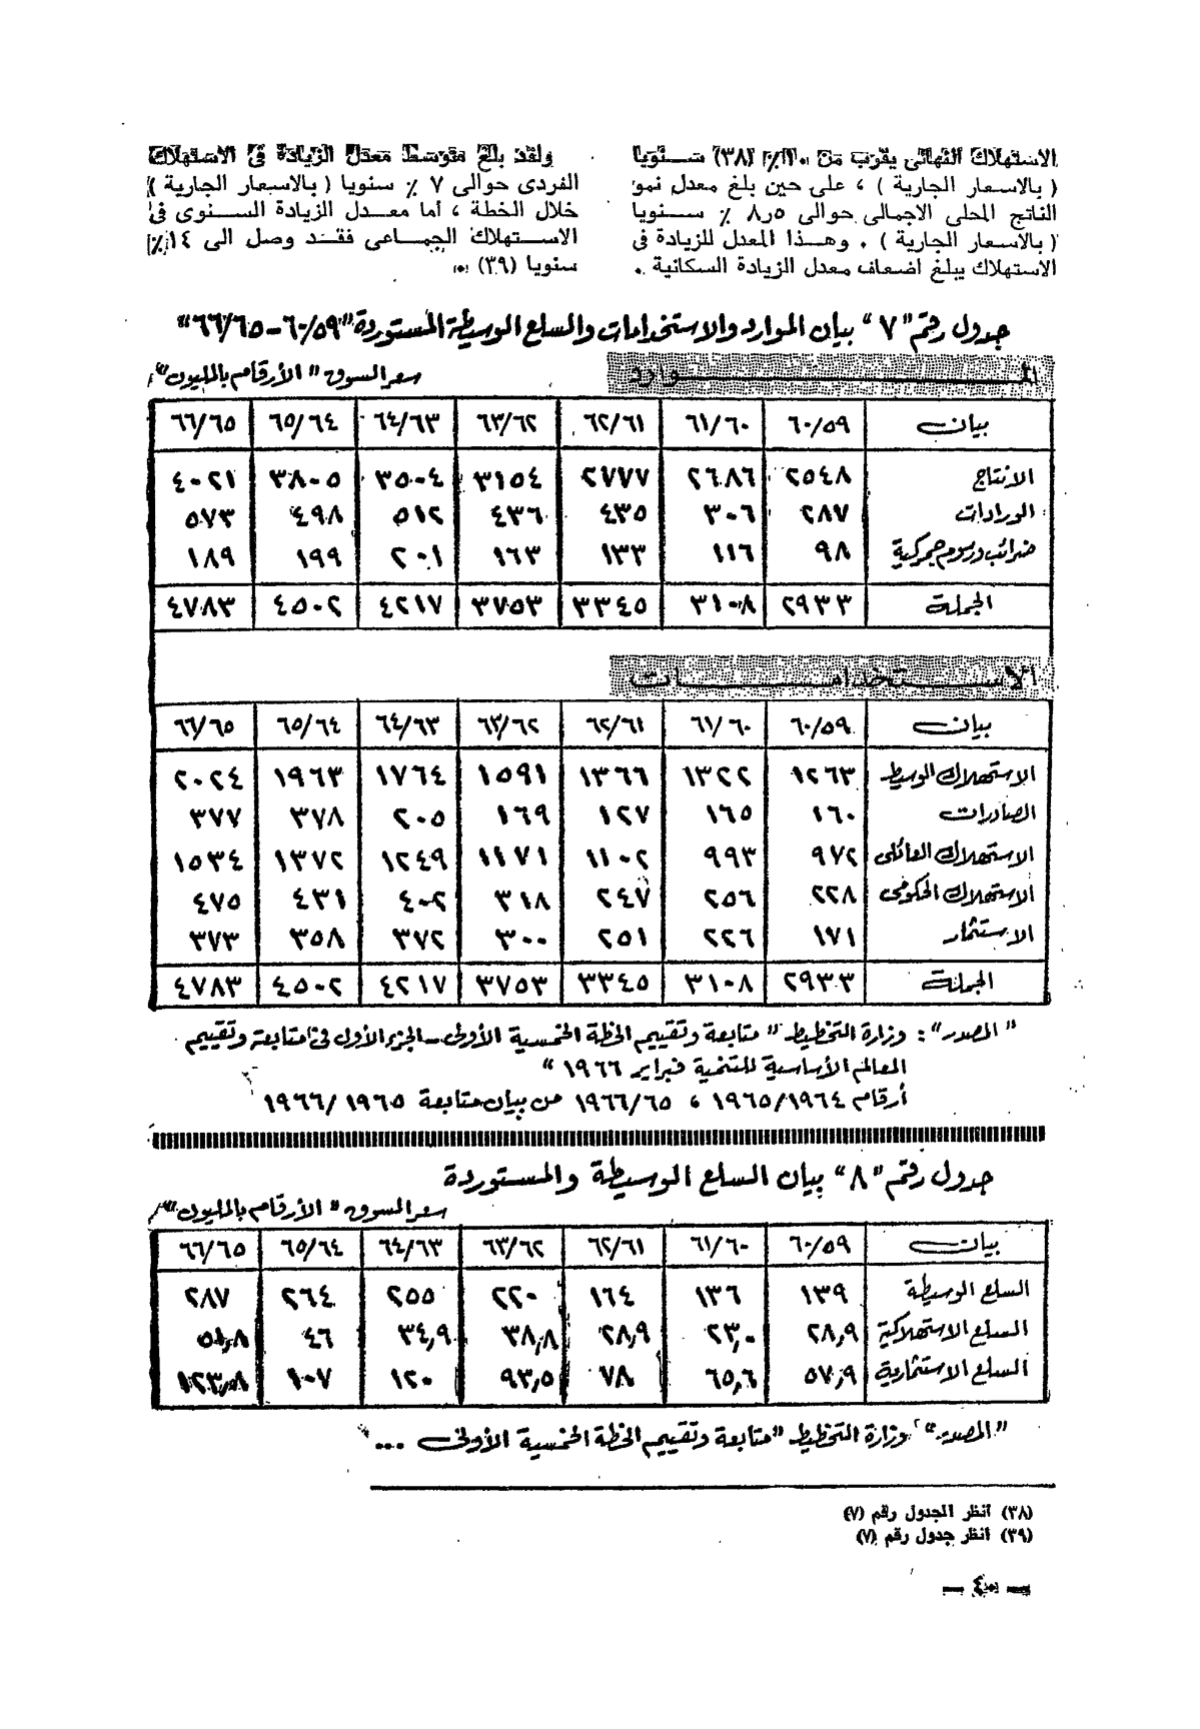 الاستهلاك النهائى يقرب من ١٠٪ (٣٨) سنويا
( بالاسعار الجارية ) ، على حين بلغ معدل نمو
الناتج المحلى الاجمالى حوالى ٨ر٥ ٪ سنويا
( بالاسعار الجارية ) . وهذا المعدل للزيادة فى
الاستهلاك يبلغ اضعاف معدل الزيادة السكانية .
ولقد بلغ متوسط معدل الزيادة فى الاستهلاك
الفردى حوالى ٧ ٪ سنويا ( بالاسعار الجارية )
خلال الخطة ، أما معدل الزيادة السنوى فى
الاستهلاك الجماعى فقد وصل الى ١٤٪
سنويا (٣٩) .
جدول رقم "٧" بيان الموارد والاستخدامات والسلع الوسيطة المستوردة "٦٠/٥٩ – ٦٦/٦٥"
المــوارد
سعر السوق "الأرقام بالمليون"
بيان ٦٠/٥٩ ٦١/٦٠ ٦٢/٦١ ٦٣/٦٢ ٦٤/٦٣ ٦٥/٦٤ ٦٦/٦٥
الانتاج ٢٥٤٨ ٢٦٨٦ ٢٧٧٧ ٣١٥٤ ٣٥٠٤ ٣٨٠٥ ٤٠٢١
الورادات ٢٨٧ ٣٠٦ ٤٣٥ ٤٣٦ ٥١٢ ٤٩٨ ٥٧٣
ضرائب ورسوم جمركية ٩٨ ١١٦ ١٣٣ ١٦٣ ٢٠١ ١٩٩ ١٨٩
الجملة ٢٩٣٣ ٣١٠٨ ٣٣٤٥ ٣٧٥٣ ٤٢١٧ ٤٥٠٢ ٤٧٨٣
الاســتخدامــات
بيان ٦٠/٥٩ ٦١/٦٠ ٦٢/٦١ ٦٣/٦٢ ٦٤/٦٣ ٦٥/٦٤ ٦٦/٦٥
الاستهلاك الوسيط ١٢٦٣ ١٣٢٢ ١٣٦٦ ١٥٩١ ١٧٦٤ ١٩٦٣ ٢٠٢٤
الصادرات ١٦٠ ١٦٥ ١٢٧ ١٦٩ ٢٠٥ ٣٧٨ ٣٧٧
الاستهلاك العائلى ٩٧٢ ٩٩٣ ١١٠٢ ١١٧١ ١٢٤٩ ١٣٧٢ ١٥٣٤
الاستهلاك الحكومى ٢٢٨ ٢٥٦ ٢٤٧ ٣١٨ ٤٠٢ ٤٣١ ٤٧٥
الاستثمار ١٧١ ٢٢٦ ٢٥١ ٣٠٠ ٣٧٢ ٣٥٨ ٣٧٣
الجملة ٢٩٣٣ ٣١٠٨ ٣٣٤٥ ٣٧٥٣ ٤٢١٧ ٤٥٠٢ ٤٧٨٣
"المصدر": وزارة التخطيط "متابعة وتقييم الخطة الخمسية الأولى – الجزء الأول فى متابعة وتقييم
المعالم الأساسية للتنمية فبراير ١٩٦٦"
أرقام ١٩٦٥/١٩٦٤ ، ١٩٦٦/٦٥ من بيان متابعة ١٩٦٦/١٩٦٥
جدول رقم "٨" بيان السلع الوسيطة والمستوردة
سعر السوق "الأرقام بالمليون"
بيان ٦٠/٥٩ ٦١/٦٠ ٦٢/٦١ ٦٣/٦٢ ٦٤/٦٣ ٦٥/٦٤ ٦٦/٦٥
السلع الوسيطة ١٣٩ ١٣٦ ١٦٤ ٢٢٠ ٢٥٥ ٢٦٤ ٢٨٧
السلع الاستهلاكية ٢٨,٩ ٢٣,٠ ٢٨,٩ ٣٨,٨ ٣٤,٩ ٤٦ ٥١,٨
السلع الاستثمارية ٥٧,٩ ٦٥,٦ ٧٨ ٩٣,٥ ١٢٠ ١٠٧ ١٢٣,٨
"المصدر" وزارة التخطيط "متابعة وتقييم الخطة الخمسية الأولى ...
(٣٨) انظر الجدول رقم (٧)
(٣٩) انظر جدول رقم (٧)